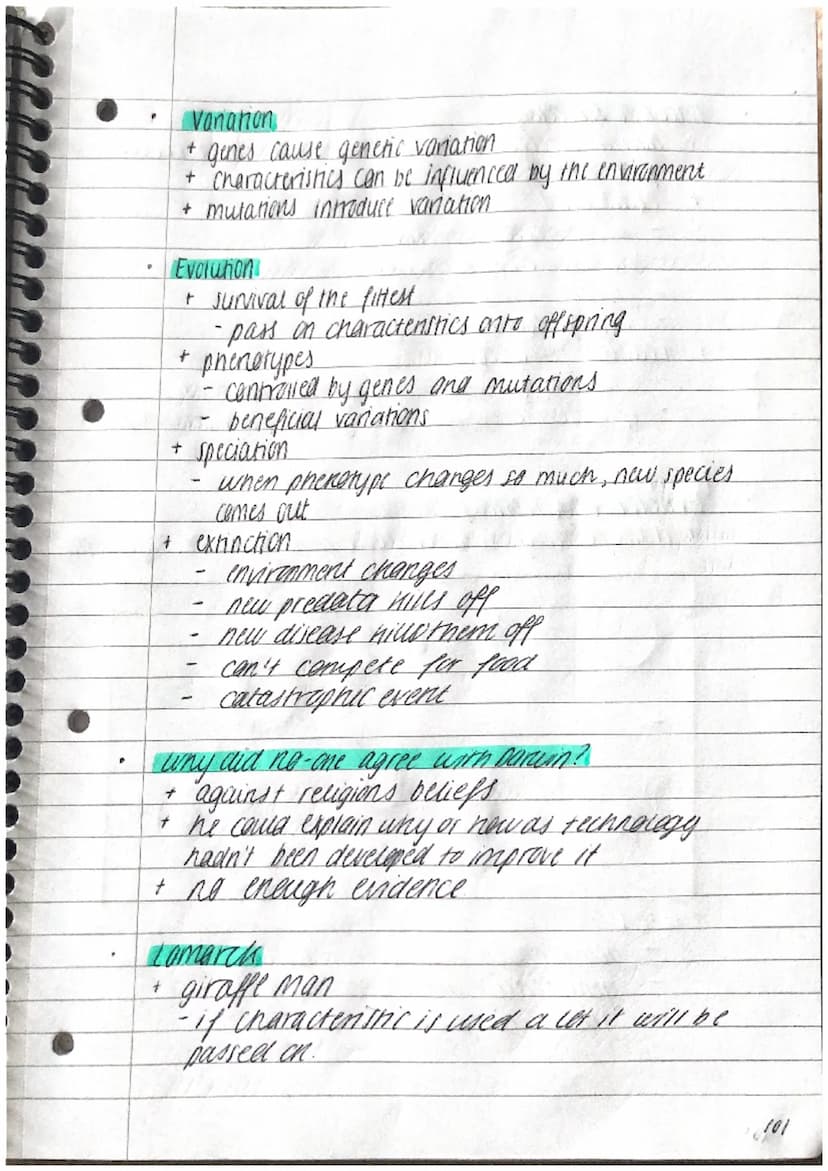 • Variation
+ genes cause genetic variation
+ characteristics can be influenced by the environment
+ mutations introduce variation
• Evolution
+ survival of the fittest
- pass on characteristics onto offspring
+ phenotypes
- controlled by genes and mutations
- beneficial variations
+ speciation
- when phenotype changes so much, new species
comes out
+ extinction
- environment changes
- new predata kills off
- new disease kills them off
- can't compete for food
- catastrophic event
• why did no-one agree with Darwin?
+ against religions beliefs
+ he could explain why or how as technology
hadn't been developed to improve it
+ no enough evidence
• Lamarck
+ giraffe man
- if characteristic is used a lot it will be
passed on.
101